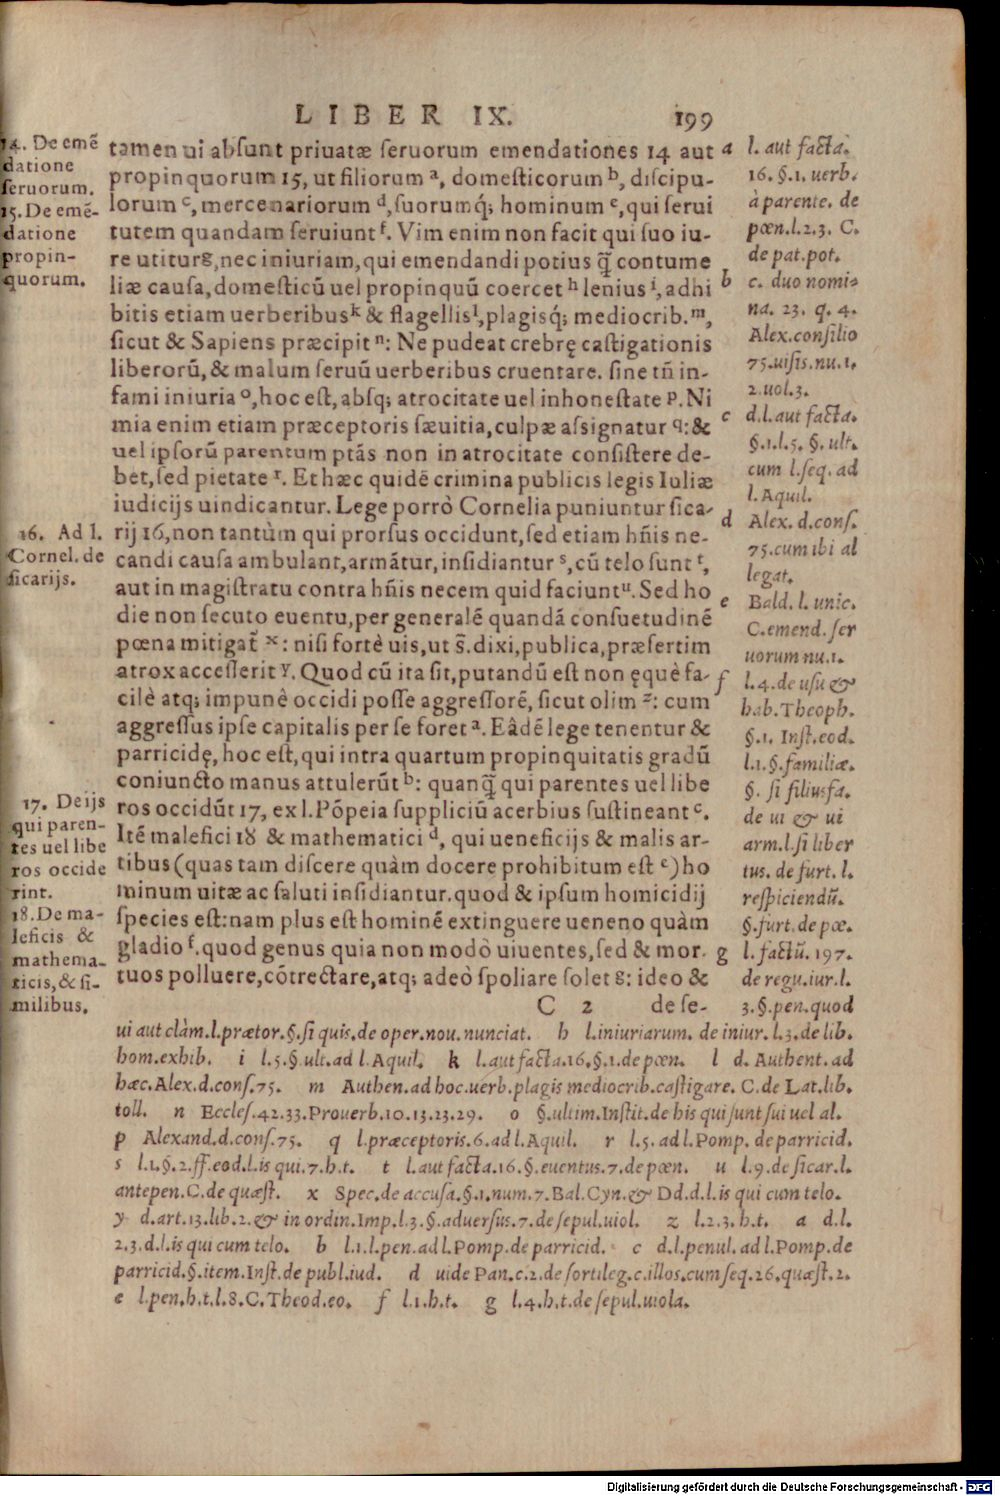 LIBER IX. 199
14. De emē
datione
seruorum.
15. De emē-
datione
propin-
quorum.
16. Ad l.
Cornel. de
sicarijs.
17. De ijs
qui paren-
tes uel libe
ros occide
rint.
18. De ma-
leficis &
mathema-
ticis, & si-
milibus.
tamen ui absunt priuatæ seruorum emendationes 14 aut
propinquorum 15, ut filiorum a, domesticorum b, discipu-
lorum c, mercenariorum d, suorumq́; hominum e, qui serui
tutem quandam seruiunt f. Vim enim non facit qui suo iu-
re utitur g, nec iniuriam, qui emendandi potius q̃ contume
liæ causa, domesticũ uel propinquũ coercet h lenius i, adhi
bitis etiam uerberibus k & flagellis l, plagisq́; mediocrib. m,
sicut & Sapiens præcipit n: Ne pudeat crebrę castigationis
liberorũ, & malum seruũ uerberibus cruentare. sine tñ in-
fami iniuria o, hoc est, absq; atrocitate uel inhonestate p. Ni
mia enim etiam præceptoris sæuitia, culpæ assignatur q: &
uel ipsorũ parentum ptãs non in atrocitate consistere de-
bet, sed pietate r. Et hæc quidẽ crimina publicis legis Iuliæ
iudicijs uindicantur. Lege porrò Cornelia puniuntur sica-
rij 16, non tantùm qui prorsus occidunt, sed etiam hñis ne-
candi causa ambulant, armãtur, insidiantur s, cũ telo sunt t,
aut in magistratu contra hñis necem quid faciunt u. Sed ho
die non secuto euentu, per generalẽ quandã consuetudinẽ
pœna mitigat̃ x: nisi fortè uis, ut s̃. dixi, publica, præsertim
atrox accesserit y. Quod cũ ita sit, putandũ est non ęquè fa-
cilè atq; impunè occidi posse aggressorẽ, sicut olim z: cum
aggressus ipse capitalis per se foret a. Eâdẽ lege tenentur &
parricidę, hoc est, qui intra quartum propinquitatis gradũ
coniuncto manus attulerũt b: quanq̃ qui parentes uel libe
ros occidũt 17, ex l. Põpeia suppliciũ acerbius sustineant c.
Itẽ malefici 18 & mathematici d, qui ueneficijs & malis ar-
tibus (quas tam discere quàm docere prohibitum est e) ho
minum uitæ ac saluti insidiantur. quod & ipsum homicidij
species est: nam plus est hominẽ extinguere ueneno quàm
gladio f. quod genus quia non modò uiuentes, sed & mor-
tuos polluere, cõtrectare, atq; adeò spoliare solet g: ideo &
C 2 de se-
a l. aut facta.
16. §. 1. uerb.
à parente. de
pœn. l. 2. 3. C.
de pat. pot.
b c. duo nomi-
na. 23. q. 4.
Alex. consilio
75. uisis. nu. 1.
2. uol. 3.
c d. l. aut facta.
§. 1. l. 5. §. ult.
cum l. seq. ad
l. Aquil.
d Alex. d. cons.
75. cum ibi al
legat.
e Bald. l. unic.
C. emend. ser
uorum nu. 1.
f l. 4. de usu &
hab. Theoph.
§. 1. Inst. eod.
l. 1. §. familiæ.
§. si filiusfa.
de ui & ui
arm. l. si liber
tus. de furt. l.
respiciendũ.
§. furt. de pœ.
g l. factũ. 197.
de regu. iur. l.
3. §. pen. quod
ui aut clàm. l. prætor. §. si quis. de oper. nou. nunciat. h l. iniuriarum. de iniur. l. 3. de lib.
hom. exhib. i l. 5. §. ult. ad l. Aquil. k l. aut facta. 16. §. 1. de pœn. l d. Authent. ad
hæc. Alex. d. cons. 75. m Authen. ad hoc. uerb. plagis mediocrib. castigare. C. de Lat. lib.
toll. n Eccles. 42. 33. Prouerb. 10. 13. 23. 29. o §. ultim. Instit. de his qui sunt sui uel al.
p Alexand. d. cons. 75. q l. præceptoris. 6. ad l. Aquil. r l. 5. ad l. Pomp. de parricid.
s l. 1. §. 2. ff. eod. l. is qui. 7. h. t. t l. aut facta. 16. §. euentus. 7. de pœn. u l. 9. de sicar. l.
antepen. C. de quæst. x Spec. de accusa. §. 1. num. 7. Bal. Cyn. & Dd. d. l. is qui cum telo.
y d. art. 13. lib. 2. & in ordin. Imp. l. 3. §. aduersus. 7. de sepul. uiol. z l. 2. 3. h. t. a d. l.
2. 3. d. l. is qui cum telo. b l. 1. l. pen. ad l. Pomp. de parricid. c d. l. penul. ad l. Pomp. de
parricid. §. item. Inst. de publ. iud. d uide Pan. c. 2. de sortileg. c. illos. cum seq. 26. quæst. 2.
e l. pen. h. t. l. 8. C. Theod. eo. f l. 1. h. t. g l. 4. h. t. de sepul. uiola.
Digitalisierung gefördert durch die Deutsche Forschungsgemeinschaft - DFG